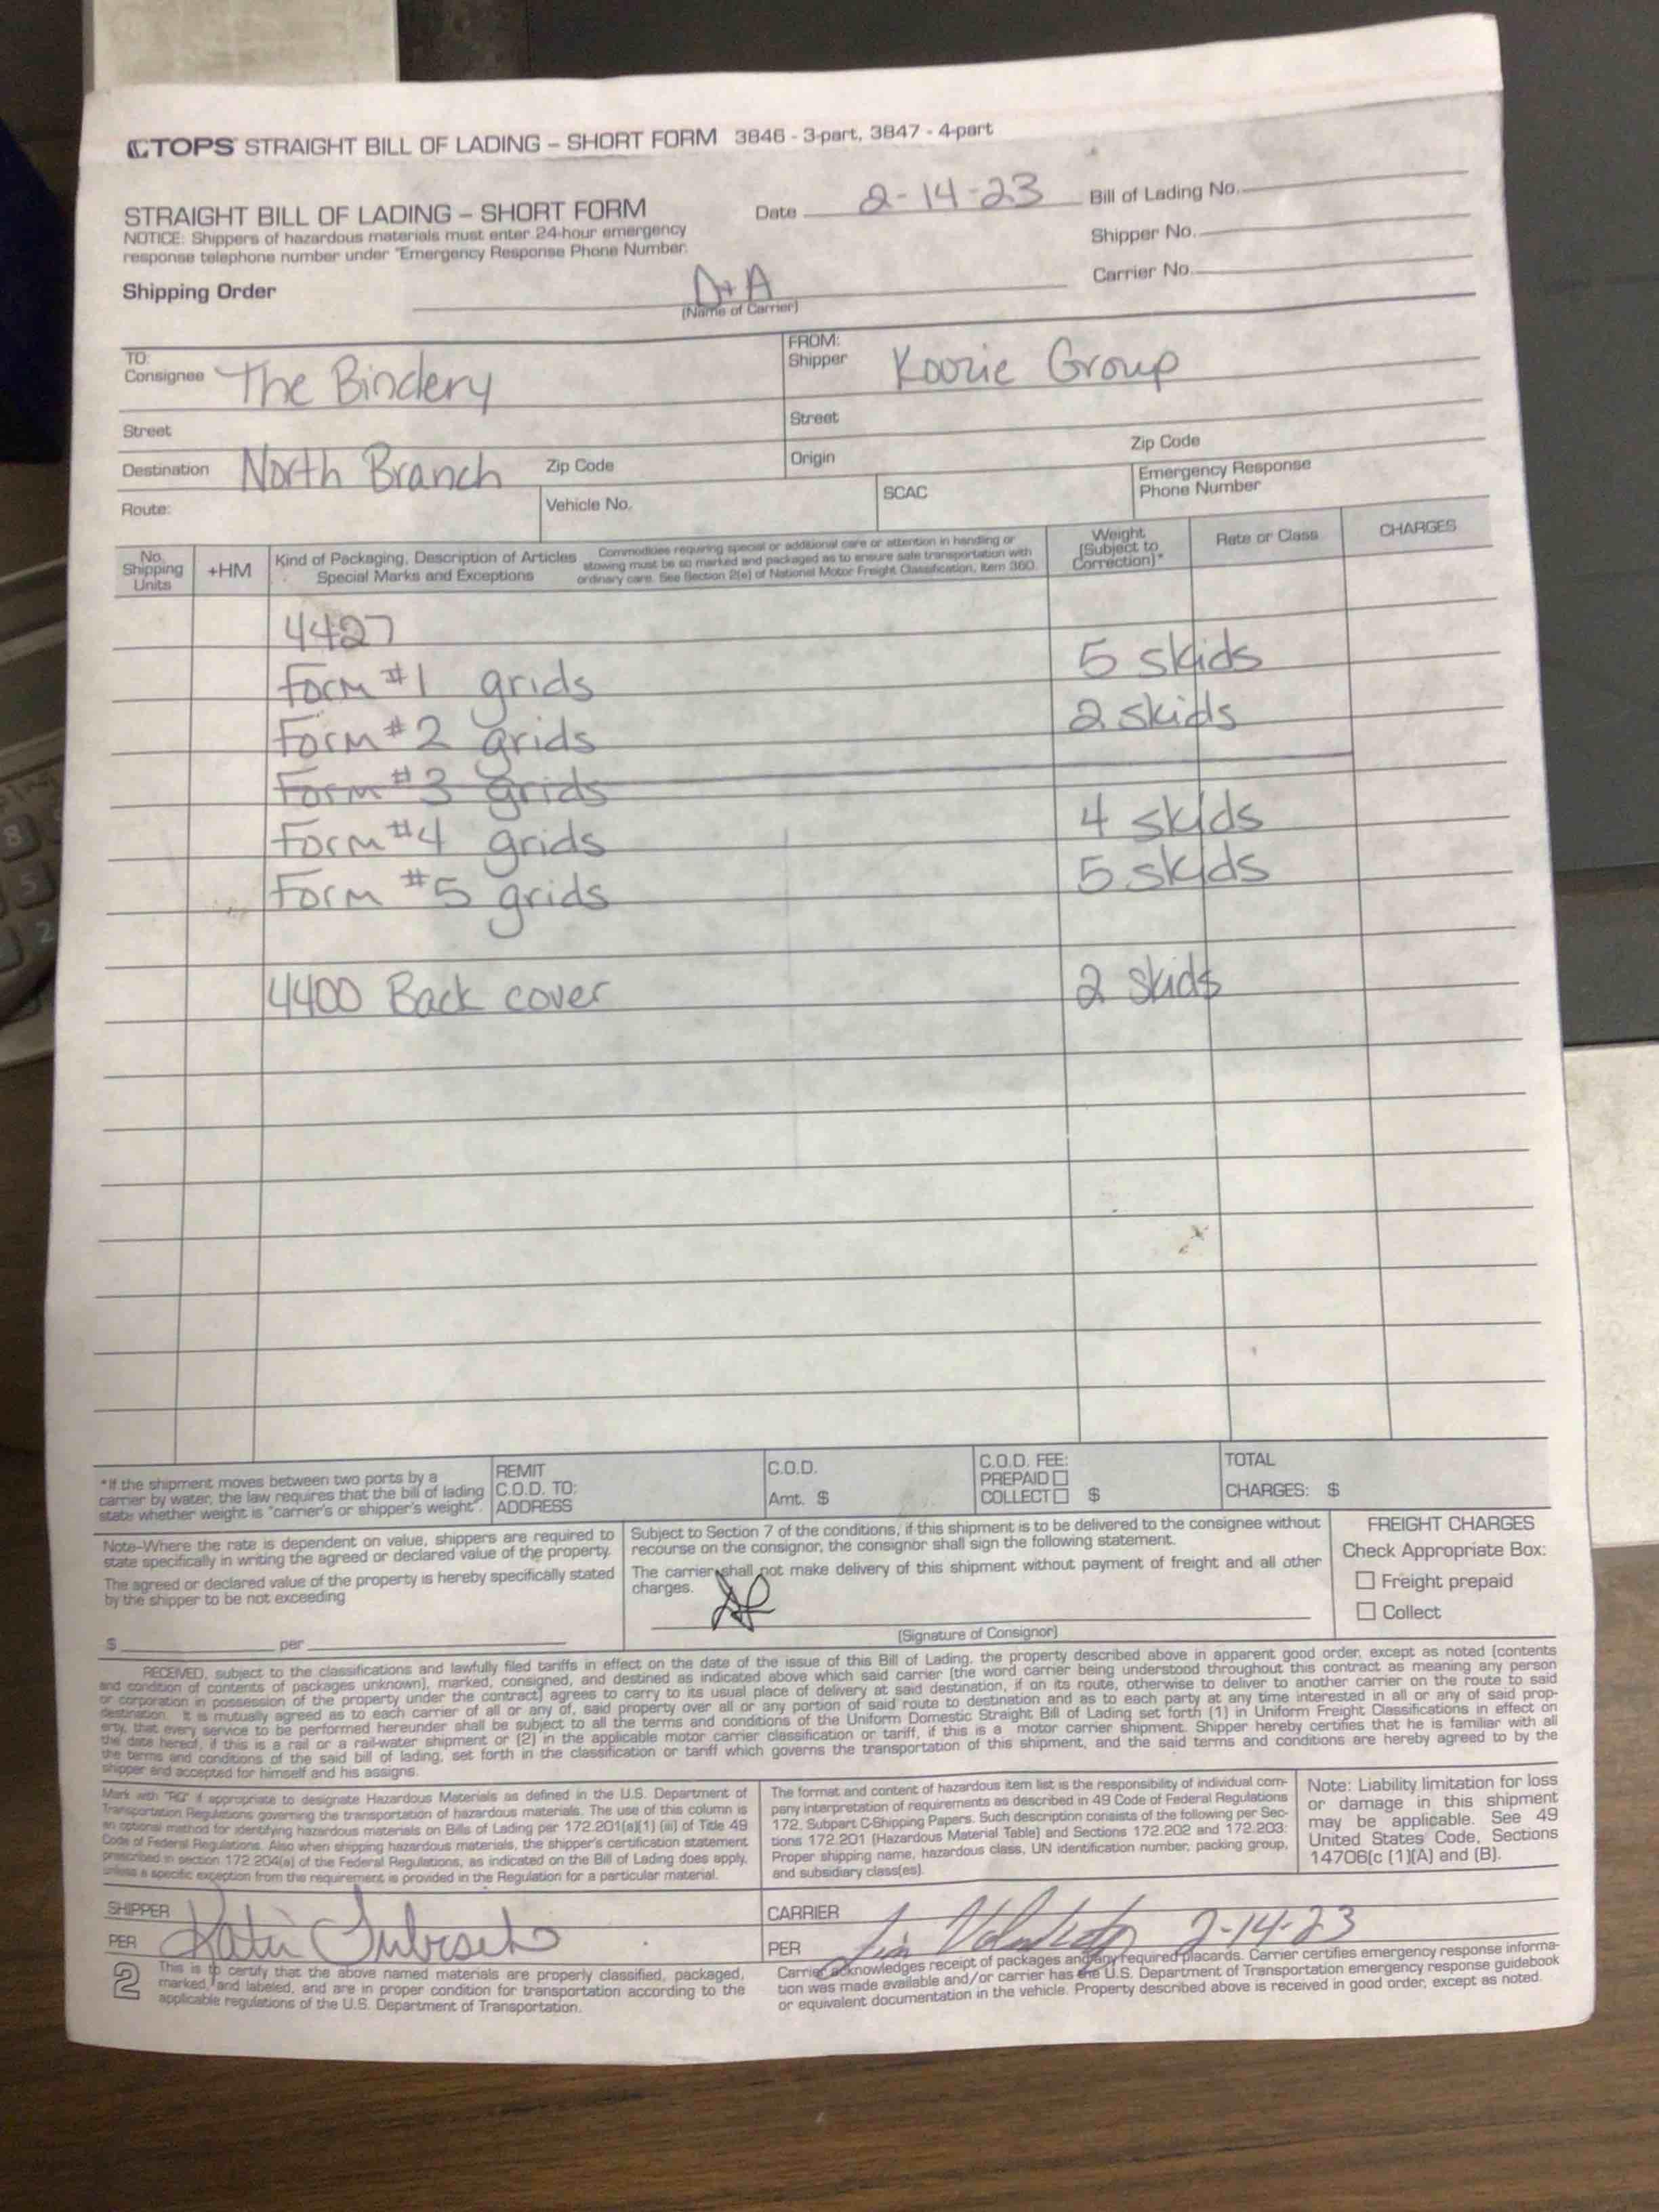 TOPS STRAIGHT BILL OF LADING – SHORT FORM 3846 - 3-part, 3847 - 4-part
STRAIGHT BILL OF LADING – SHORT FORM
NOTICE: Shippers of hazardous materials must enter 24-hour emergency
response telephone number under "Emergency Response Phone Number.
Date 2-14-23
Bill of Lading No.
Shipper No.
Carrier No.
Shipping Order
D+A
(Name of Carrier)
TO:
Consignee The Bindery
FROM:
Shipper Koozie Group
Street
Street
Destination North Branch Zip Code
Origin
Zip Code
Route:
Vehicle No.
SCAC
Emergency Response
Phone Number
No.
Shipping
Units
+HM
Kind of Packaging, Description of Articles
Special Marks and Exceptions
Commodities requiring special or additional care or attention in handling or
stowing must be so marked and packaged as to ensure safe transportation with
ordinary care. See Section 2(e) of National Motor Freight Classification, Item 360.
Weight
(Subject to
Correction)*
Rate or Class
CHARGES
4427
Form #1 grids 5 skids
Form #2 grids 2 skids
Form #3 grids
Form #4 grids 4 skids
Form #5 grids 5 skids
4400 Back cover 2 skids
*If the shipment moves between two ports by a
carrier by water, the law requires that the bill of lading
state whether weight is "carrier's or shipper's weight".
REMIT
C.O.D. TO:
ADDRESS
C.O.D.
Amt. $
C.O.D. FEE:
PREPAID
COLLECT $
TOTAL
CHARGES: $
Note–Where the rate is dependent on value, shippers are required to
state specifically in writing the agreed or declared value of the property.
The agreed or declared value of the property is hereby specifically stated
by the shipper to be not exceeding
$ per
Subject to Section 7 of the conditions, if this shipment is to be delivered to the consignee without
recourse on the consignor, the consignor shall sign the following statement.
The carrier shall not make delivery of this shipment without payment of freight and all other
charges.
(Signature of Consignor)
FREIGHT CHARGES
Check Appropriate Box:
Freight prepaid
Collect
RECEIVED, subject to the classifications and lawfully filed tariffs in effect on the date of the issue of this Bill of Lading, the property described above in apparent good order, except as noted (contents
and condition of contents of packages unknown), marked, consigned, and destined as indicated above which said carrier (the word carrier being understood throughout this contract as meaning any person
or corporation in possession of the property under the contract) agrees to carry to its usual place of delivery at said destination, if on its route, otherwise to deliver to another carrier on the route to said
destination. It is mutually agreed as to each carrier of all or any of, said property over all or any portion of said route to destination and as to each party at any time interested in all or any of said prop-
erty, that every service to be performed hereunder shall be subject to all the terms and conditions of the Uniform Domestic Straight Bill of Lading set forth (1) in Uniform Freight Classifications in effect on
the date hereof, if this is a rail or a rail-water shipment or (2) in the applicable motor carrier classification or tariff, if this is a motor carrier shipment. Shipper hereby certifies that he is familiar with all
the terms and conditions of the said bill of lading, set forth in the classification or tariff which governs the transportation of this shipment, and the said terms and conditions are hereby agreed to by the
shipper and accepted for himself and his assigns.
Mark with "RQ" if appropriate to designate Hazardous Materials as defined in the U.S. Department of
Transportation Regulations governing the transportation of hazardous materials. The use of this column is
an optional method for identifying hazardous materials on Bills of Lading per 172.201(a)(1) (iii) of Title 49
Code of Federal Regulations. Also when shipping hazardous materials, the shipper's certification statement
prescribed in section 172.204(a) of the Federal Regulations, as indicated on the Bill of Lading does apply,
unless a specific exception from the requirement is provided in the Regulation for a particular material.
The format and content of hazardous item list is the responsibility of individual com-
pany interpretation of requirements as described in 49 Code of Federal Regulations
172, Subpart C-Shipping Papers. Such description consists of the following per Sec-
tions 172.201 (Hazardous Material Table) and Sections 172.202 and 172.203:
Proper shipping name, hazardous class, UN identification number, packing group,
and subsidiary class(es).
Note: Liability limitation for loss
or damage in this shipment
may be applicable. See 49
United States Code, Sections
14706(c (1)(A) and (B).
SHIPPER
PER Katie
CARRIER
PER Jim 2-14-23
2
This is to certify that the above named materials are properly classified, packaged,
marked, and labeled, and are in proper condition for transportation according to the
applicable regulations of the U.S. Department of Transportation.
Carrier acknowledges receipt of packages and any required placards. Carrier certifies emergency response informa-
tion was made available and/or carrier has the U.S. Department of Transportation emergency response guidebook
or equivalent documentation in the vehicle. Property described above is received in good order, except as noted.
8
5
2